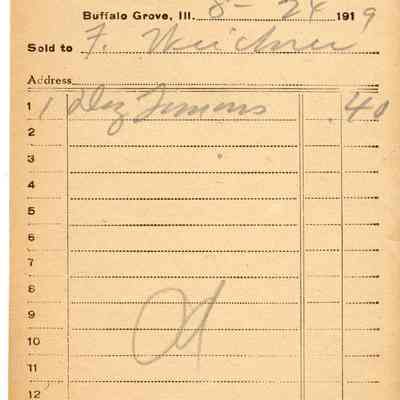 Buffalo Grove, Ill. 8-24 1919
Sold to F. Weidner
Address
1 1 Doz Lemons .40
2
3
4
5
6
7
8
9
10
11
12